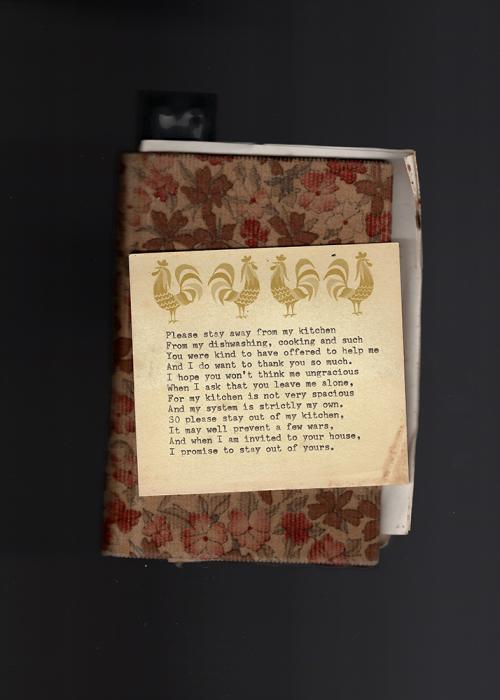 Please stay away from my kitchen
From my dishwashing, cooking and such
You were kind to have offered to help me
And I do want to thank you so much.
I hope you won't think me ungracious
When I ask that you leave me alone,
For my kitchen is not very spacious
And my system is strictly my own.
SO please stay out of my kitchen,
It may well prevent a few wars,
And when I am invited to your house,
I promise to stay out of yours.